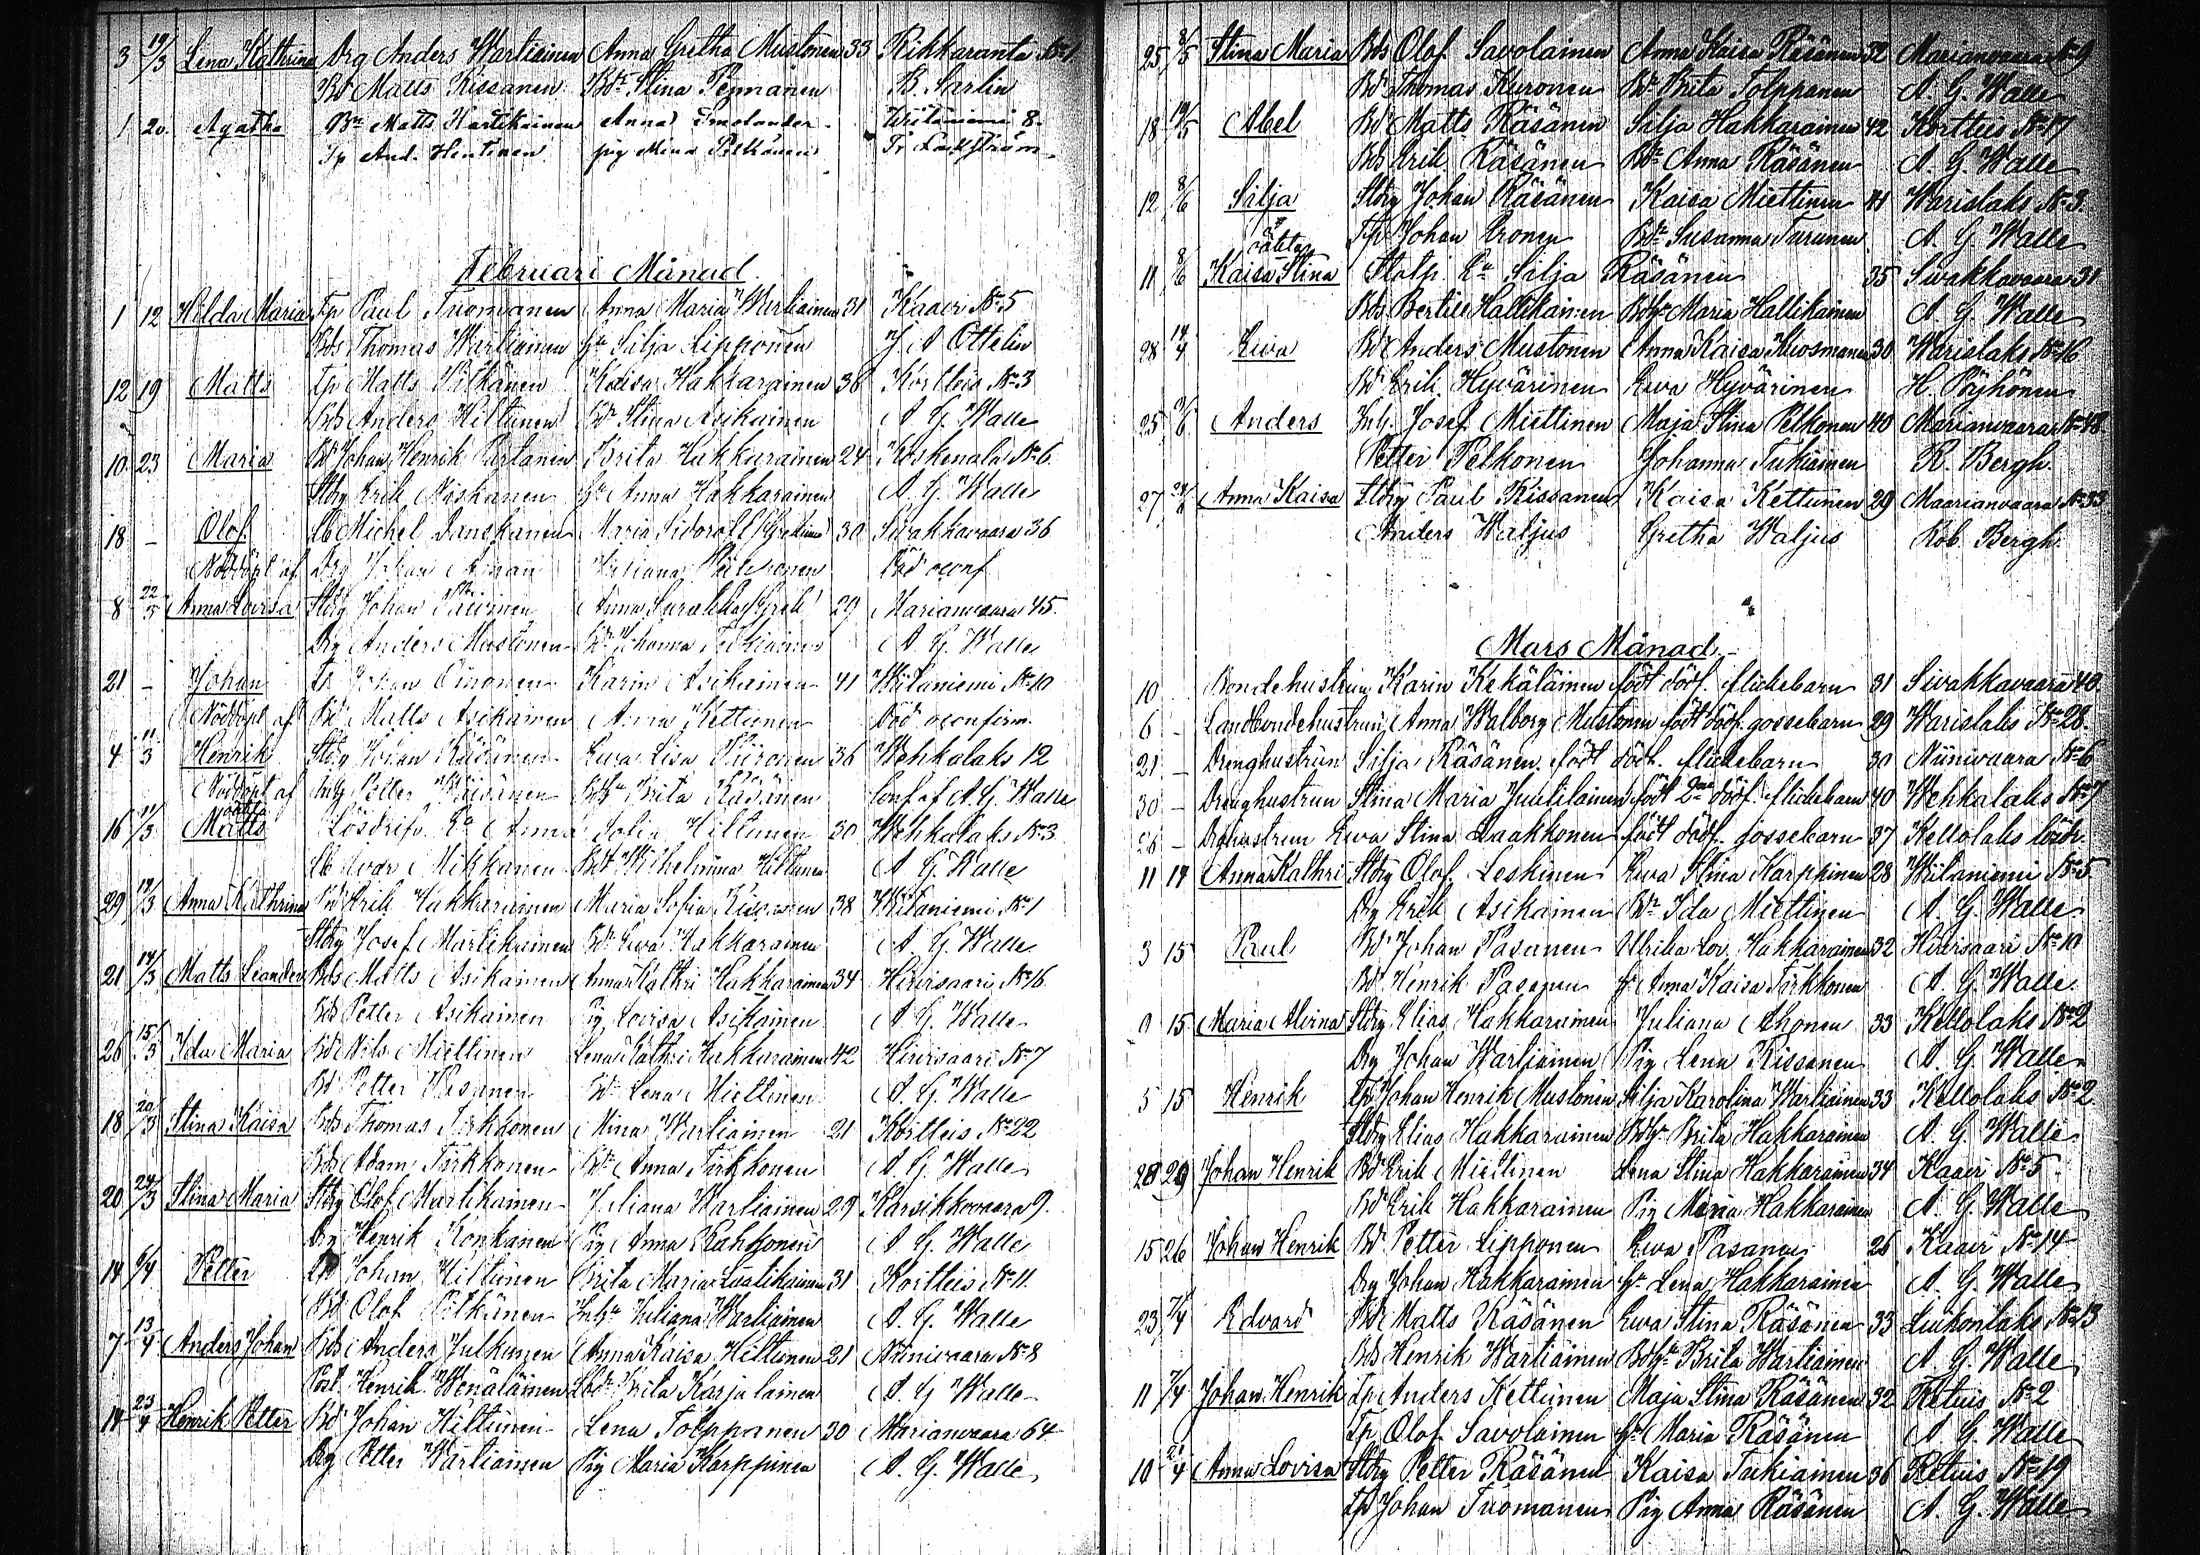 3 19/3 Lena Kathrina Drg Anders Wartiainen Anna Gretha Mustonen 33 Rikkaranta No 1
Bd Matts Kissanen Bdr Stina B. Sarlin
1 20. Agatha Matts Hartikainen Anna Smolander 8.
Tp And. Hintinen pig Mina Pelkonen
Februari Månad.
1 12 Hilda Maria Tp Paul Tuomanen Anna Maria Wartiainen 31 Kaavi No 5
Bds Thomas Wartiainen hu Silja Lipponen J A Ottelin
12 19 Matts Tp Matts Pitkänen Kaisa Hakkarainen 38 Kortteis No 3
Bds Anders Hiltunen Bdr Stina Asikainen A. G. Walle
10 23 Maria Bd Johan Henrik Partanen Brita Hakkarainen 24 Koskenala No 6.
Stdrg Erik Niskanen hu Anna Hakkarainen A. G. Walle
18 – Olof Lb Michel Danskanen Maria Sidoroff 30 Siwakkavaara 36
Nöddöpt af Drg Johan död oconf
8 22/3 Anna Lovisa Stdrg Johan Anna 29 Marianvaara 45.
Drg Anders Mustonen Bdr Johanna Tukiainen A. G. Walle
21 – Johan Johan Oinonen Karin Asikainen 41 Wiitaniemi No 10
Nöddöpt af Bd Matts Asikainen Anna Kettunen Död oconfirm.
4 11/3 Henrik Stdrg Johan Räsänen Ewa Lisa Piironen 36 Wehkalaks 12
Nöddöpt af Inh Petter Räisänen Brita Räsänen Conf af A. G. Walle
16 11/3 oäkta Matts Lösdrif. Anna Sofia Hiltunen 30 Wehkalaks No 3
Lb Iwar Mikkanen Bdr Wilhelmina Hiltunen A. G. Walle
29 12/3 Anna Kathrina Bd Erik Hakkarainen Maria Sofia 38 Wiitaniemi No 1
Stdrg Josef Martikainen Bdr Ewa Hakkarainen A. G. Walle
21 14/3 Matts Leander Bds Matts Asikainen Anna Kathri Hakkarainen 34 Hirvisaari No 16.
Bds Petter Asikainen Pig Lovisa Asikainen A. G. Walle
26 15/3 Ida Maria Bd Nils Miettinen Lena Kathri Hakkarainen 42 Hirvisaari No 7
Bd Petter Pasanen Bdr Lena Miettinen A. G. Walle
18 20/3 Stina Kaisa Bds Thomas Tirkkonen Mina Wartiainen 21 Kortteis No 22
Bds Adam Tirkkonen Bdr Anna Tirkkonen A. G. Walle
20 24/3 Stina Maria Stdrg Olof Martikainen Juliana Wartiainen 29 Karsikkovaara 9.
Drg Henrik Konkanen Pig Anna Rahkonen A. G. Walle
14 6/4 Petter Johan Hiltunen Brita Maria 31 Kortteis No 11.
Bd Olof Pitkänen Juliana Wartiainen A. G. Walle
7 13/4 Anders Johan Bds Anders Julkunen Anna Kaisa Hiltunen 21 Niinivaara No 8
Henrik Wenäläinen Brita Karjalainen A. G. Walle
14 23/4 Henrik Petter Bd Johan Hiltunen Lena Tolppanen 30 Marianvaara 64
Drg Petter Wartiainen Pig Maria Karppinen A. G. Walle
25 8/5 Stina Maria Bds Olof Savolainen Anna Kaisa Räsänen 32 Marianvaara No 9
Bd Thomas Kuronen Bdr Brita Tolppanen A. G. Walle
18 19/5 Abel Bd Matts Räsänen Silja Hakkarainen 42 Kortteis No 17
Bds Erik Räsänen Bdr Anna Räsänen A. G. Walle
12 8/6 Silja Stdrg Johan Räsänen Kaisa Miettinen 41 Warislaks No 3.
Tp Johan Eronen Bdr Susanna Turunen A. G. Walle
11 8/6 oäkta Kaisa Stina Silja Räsänen 35 Siwakkavaara 31
Bds Bertill Hallikainen Maria Hallikainen A. G. Walle
28 14/4 Ewa Bd Anders Mustonen Anna Kaisa Kuosmanen 30 Warislaks No 16
Bd Erik Hyvärinen Ewa Hyvärinen H. Pöyhönen
25 /6 Anders Inh. Josef Miettinen Maja Stina Pelkonen 40 Marianvaara No 48
Petter Pelkonen Johanna Tukiainen R. Bergh.
27 24/6 Anna Kaisa Stdrg Paul Kissanen Kaisa Kettunen 29 Maarianvaara No 33
Anders Waljus Gretha Waljus Rob. Bergh.
Mars Månad.
10 – Bondehustrun Karin Kekäläinen födt dödf. flickebarn 31 Sivakkavaara 40.
6 – Landbondehustrun Anna Walborg Mustonen födt dödf. gossebarn 29 Warislaks No 28.
21 – Drenghustrun Silja Räsänen födt dödf. flickebarn 30 Niinivaara No 6
30 – Drenghustrun Stina Maria Juutilainen födt 2ne dödf. flickebarn 40 Wehkalaks No 7
26 – Drghustrun Ewa Stina Laakkonen födt dödf. gossebarn 37 Kellolaks lösdr.
11 14 Anna Kathri Stdrg Olof Leskinen Ewa Stina Karppinen 28 Wiitaniemi No 5
Drg Erik Asikainen Bdr Ida Miettinen A. G. Walle
3 15 Paul Bd Johan Pasanen Ulrika Lov. Hakkarainen 32 Hirvisaari No 10
Bd Henrik Pasanen hu Anna Kaisa Tirkkonen A. G. Walle
9 15 Maria Alvina Stdrg Elias Hakkarainen Juliana Ahonen 33 Kellolaks No 2
Drg Johan Wartiainen Pig Lena Kissanen A. G. Walle
5 15 Henrik Tp Johan Henrik Mustonen Silja Karolina Wartiainen 33 Kellolaks No 2
Stdrg Elias Hakkarainen Brita Hakkarainen A. G. Walle
28 29 Johan Henrik Bd Erik Miettinen Lena Stina Hakkarainen 34 Kaavi No 5
Bd Erik Hakkarainen Pig Maria Hakkarainen A. G. Walle
15 26 Johan Henrik Bd Petter Lipponen Ewa Pasanen 26 Kaavi No 14
Drg Johan Hakkarainen hu Lena Hakkarainen A. G. Walle
23 7/4 Edvard Bd Matts Räsänen Ewa Stina Räsänen 33 Luikonlaks No 13
Bds Henrik Wartiainen Brita Wartiainen A. G. Walle
11 7/4 Johan Henrik Tp Anders Kettunen Maja Stina Räsänen 32 Retuis No 2
Tp Olof Savolainen hu Maria Räsänen A. G. Walle
10 21/4 Anna Lovisa Stdrg Petter Räsänen Kaisa Tukiainen 36 Retuis No 19
Tp Johan Tuomanen Pig Anna Räsänen A. G. Walle